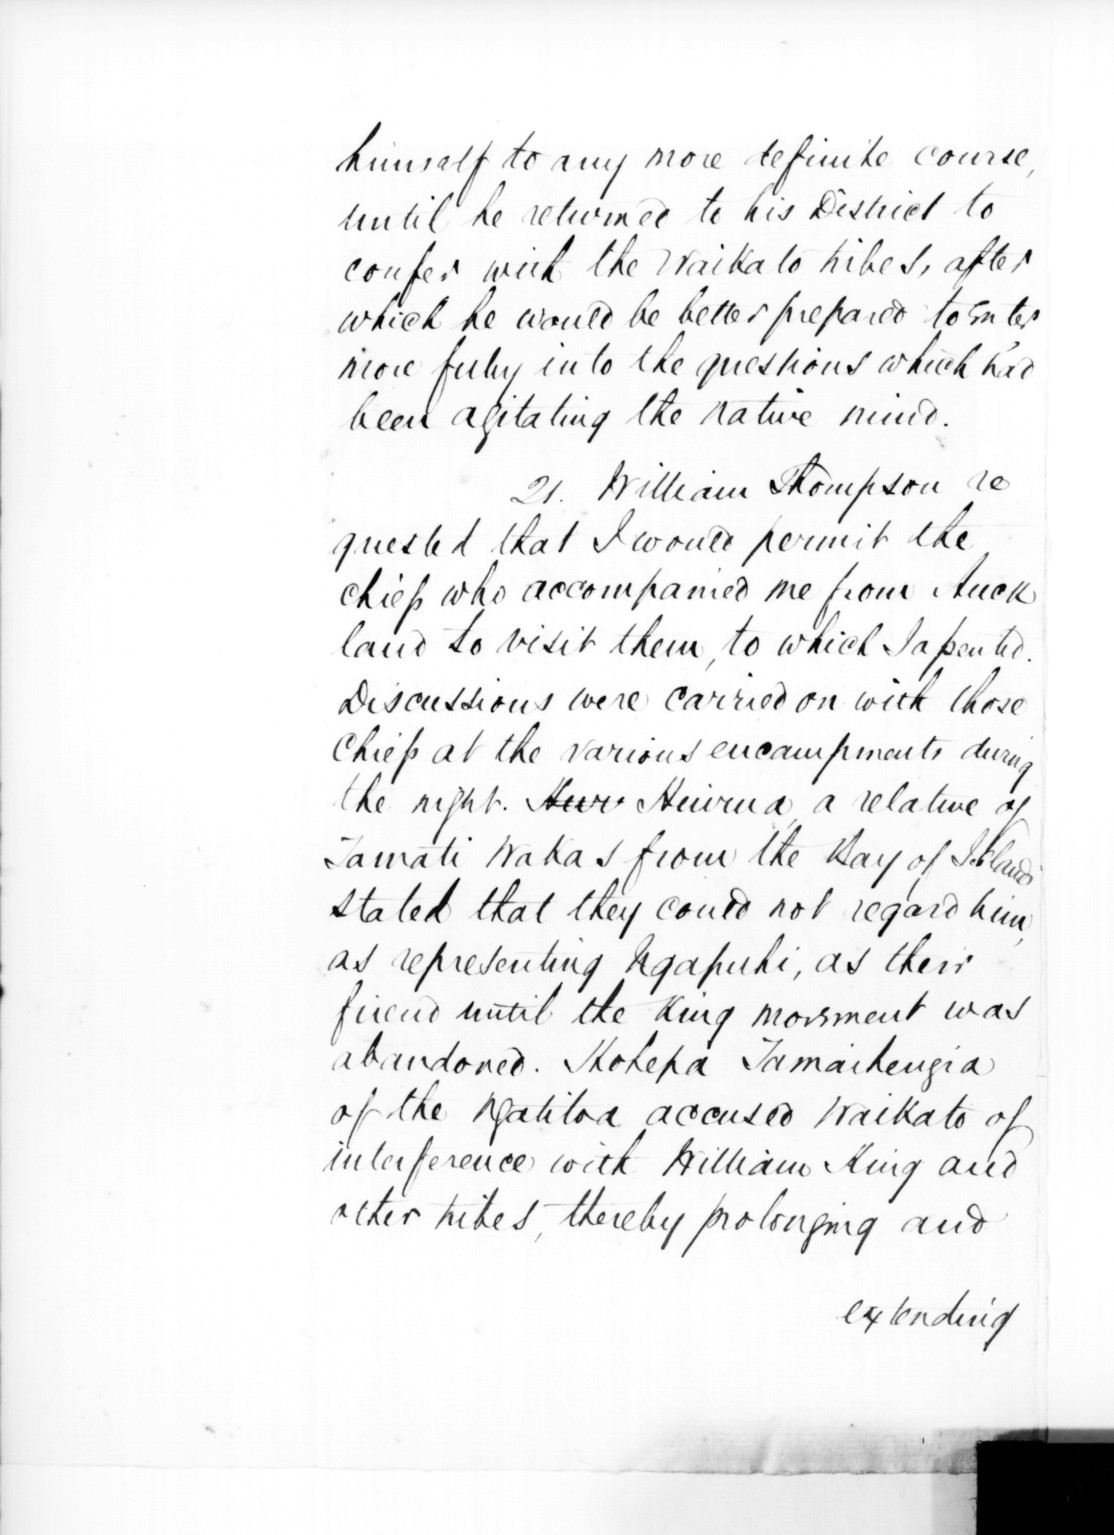 himself to any more definite course,
until he returned to his District to
confer with the Waikato tribes, after
which he would be better prepared to Enter
more fully into the questions which had
been agitating the native mind.
21. William Thompson re
quested that I would permit the
chiefs who accompanied me from Auck
land to visit them, to which I assented.
Discussions were carried on with those
Chiefs at the various encampments during
the night. a relative of
Tamati Wakas from the Bay of Islands
stated that they could not regard him,
as representing Ngapuhi, as their
friend until the King movement was
abandoned. Hohepa Tamaihengia
of the Ngatitoa accused Waikato of
interference with William King and
other tribes, thereby prolonging and
extending